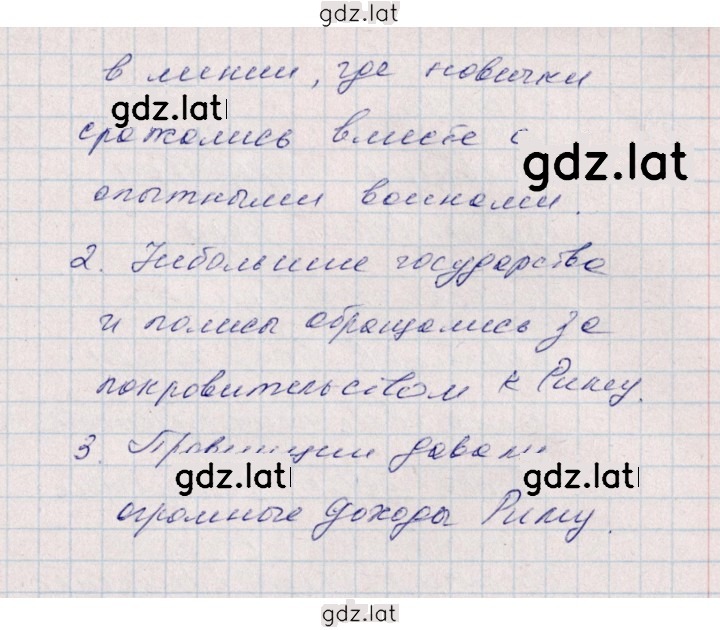 gdz.lat
в линии, где новички
gdz.lat
сражались вместе с
gdz.lat
опытными воинами.
2. Небольшие государства
и полисы обращались за
покровительством к Риму.
3. Провинции давали
gdz.lat
gdz.lat
огромные доходы Риму.
gdz.lat